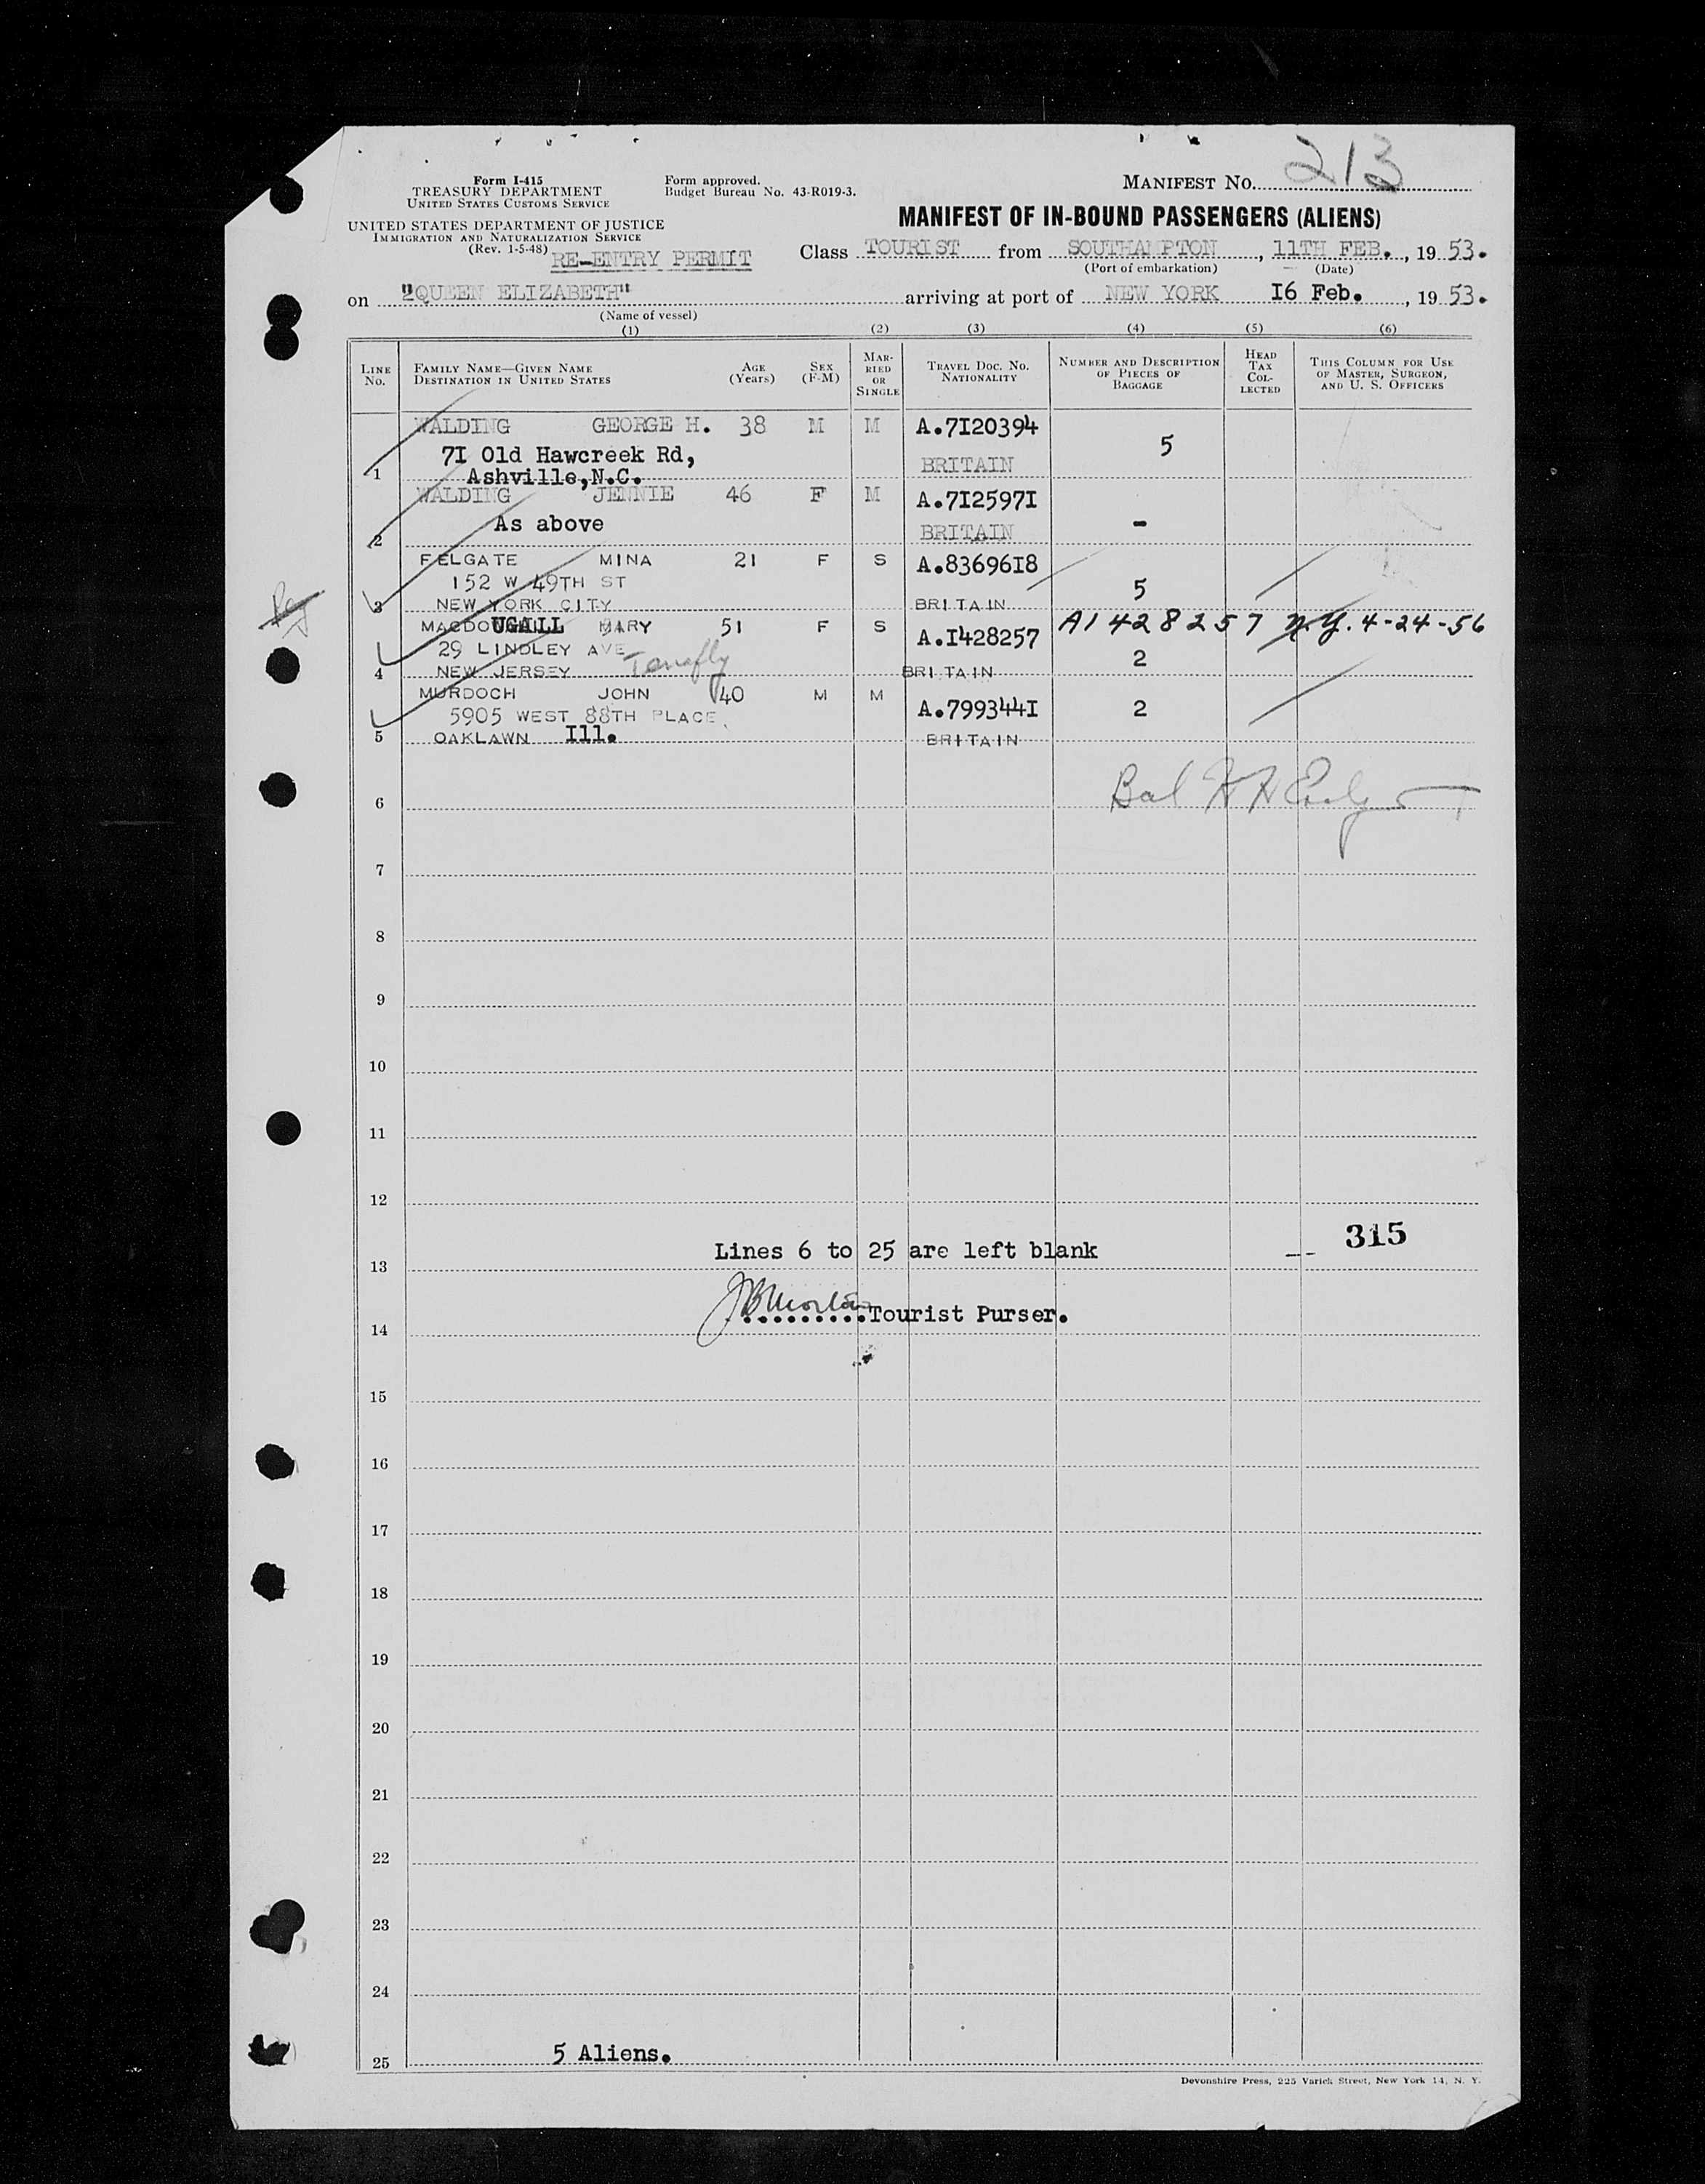 Form I-415
TREASURY DEPARTMENT
UNITED STATES CUSTOMS SERVICE
UNITED STATES DEPARTMENT OF JUSTICE
IMMIGRATION AND NATURALIZATION SERVICE
(Rev. 1-5-48)
RE-ENTRY PERMIT
Form approved.
Budget Bureau No. 43-R019-3.
MANIFEST NO. 213
MANIFEST OF IN-BOUND PASSENGERS (ALIENS)
Class TOURIST from SOUTHAMPTON, 11TH FEB., 19 53.
(Port of embarkation) (Date)
on "QUEEN ELIZABETH" arriving at port of NEW YORK 16 Feb., 19 53.
(Name of vessel)
(1) (2) (3) (4) (5) (6)
LINE No. FAMILY NAME—GIVEN NAME DESTINATION IN UNITED STATES AGE (Years) SEX (F-M) MARRIED OR SINGLE TRAVEL DOC. NO. NATIONALITY NUMBER AND DESCRIPTION OF PIECES OF BAGGAGE HEAD TAX COLLECTED THIS COLUMN FOR USE OF MASTER, SURGEON, AND U. S. OFFICERS
WALDING GEORGE H. 38 M M A.7120394
71 Old Hawcreek Rd, 5
1 Ashville,N.C. BRITAIN
WALDING JENNIE 46 F M A.7125971
2 As above BRITAIN -
FELGATE MINA 21 F S A.8369618
152 W 49TH ST 5
3 NEW YORK CITY BRITAIN
MACDOUGALL MARY 51 F S A.1428257 A1428257 N.Y. 4-24-56
29 LINDLEY AVE Tenafly 2
4 NEW JERSEY BRITAIN
MURDOCH JOHN 40 M M A.7993441
5905 WEST 88TH PLACE, 2
5 OAKLAWN Ill. BRITAIN
6 Bal
7
8
9
10
11
12
315
13 Lines 6 to 25 are left blank
14 .........Tourist Purser.
15
16
17
18
19
20
21
22
23
24
25 5 Aliens.
Devonshire Press, 225 Varick Street, New York 14, N. Y.